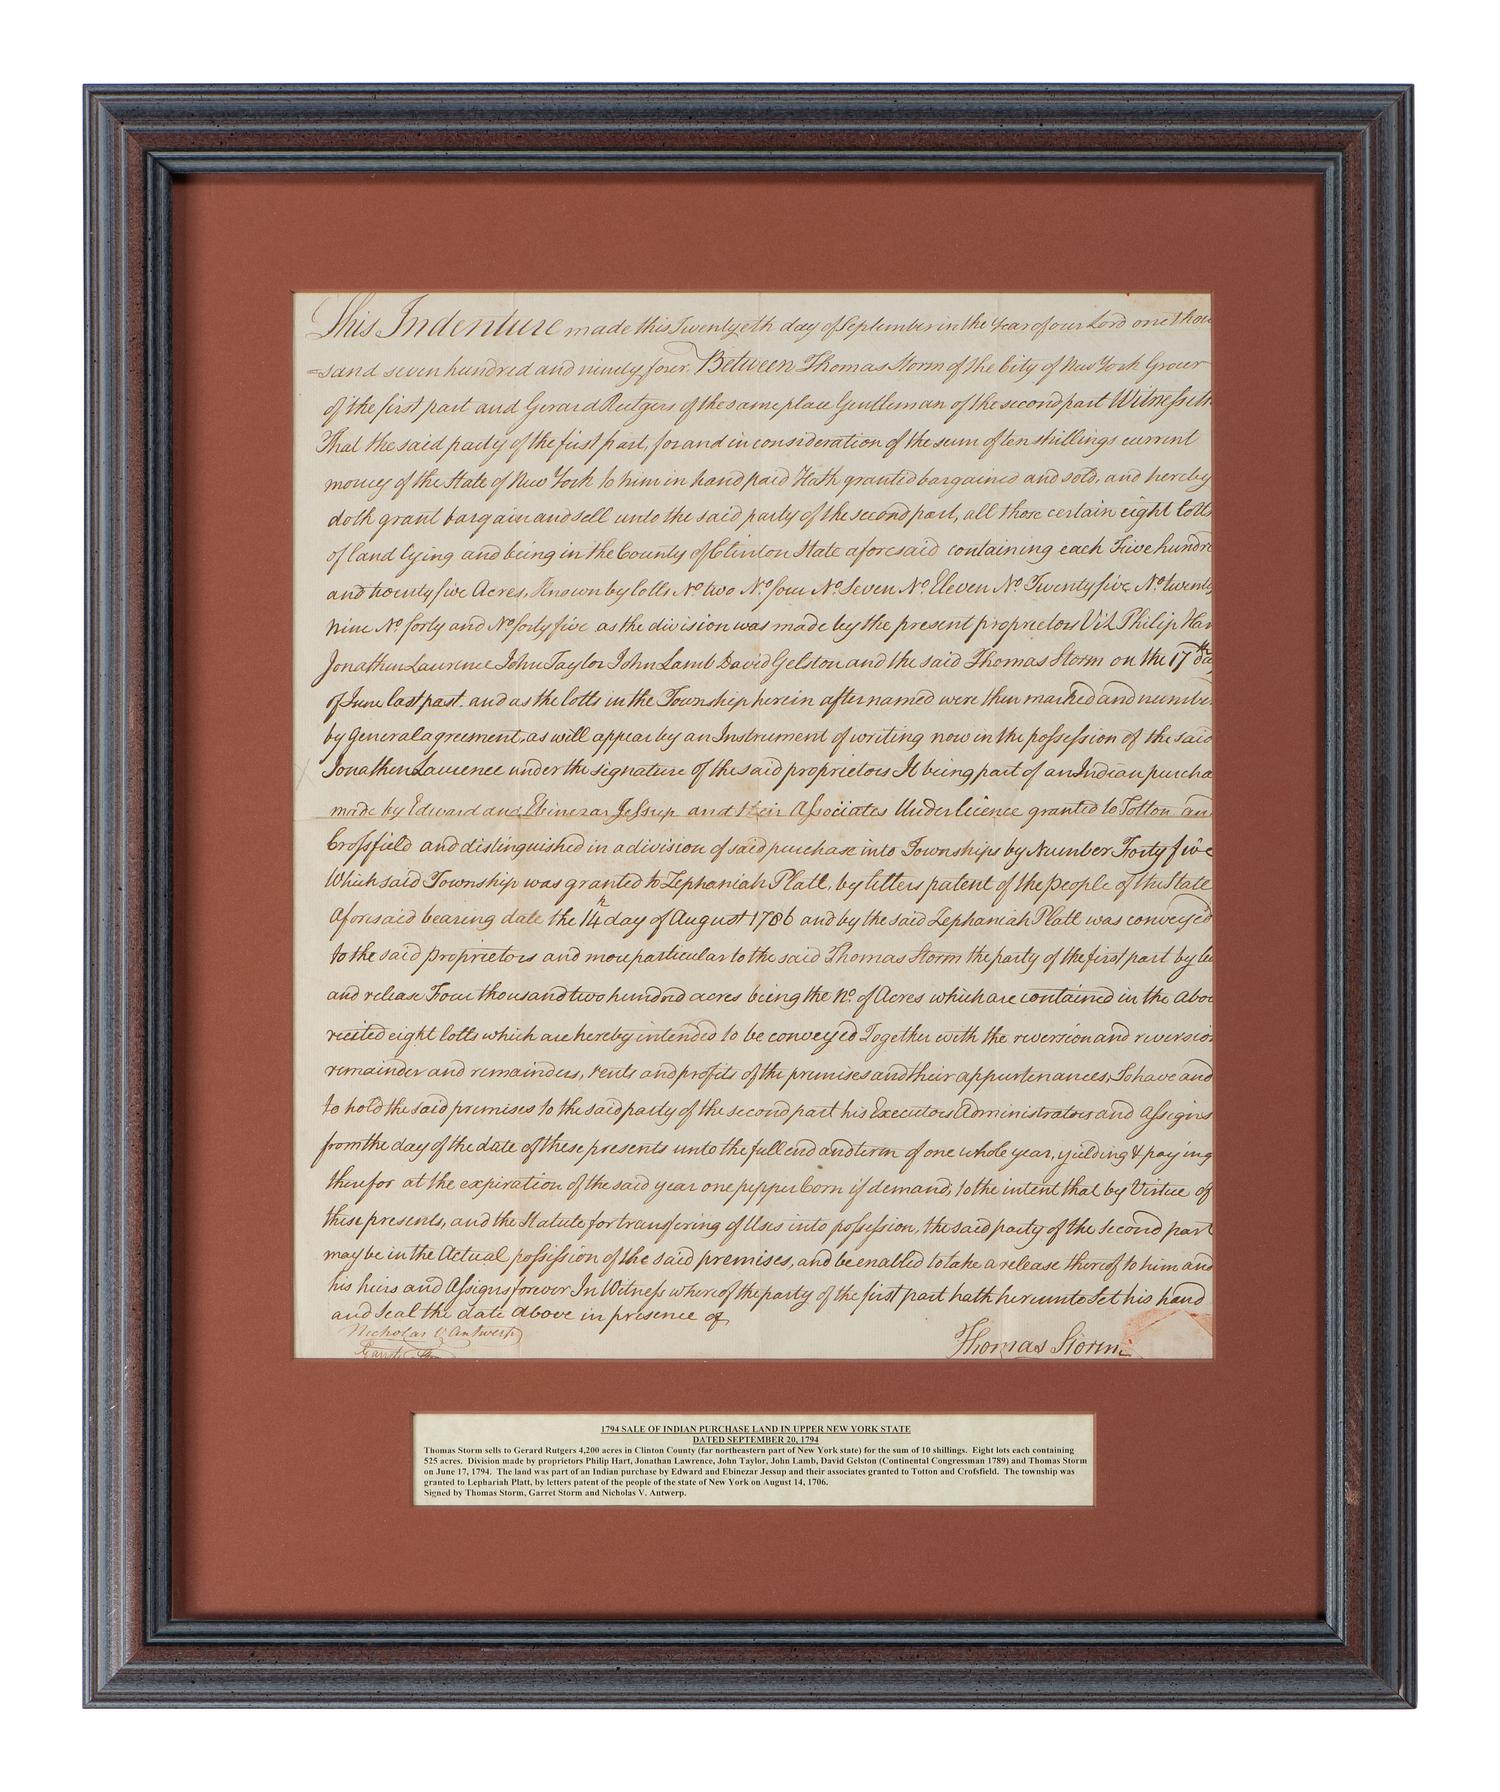 This Indenture made this Twentyeth day of September in the Year of our Lord one thou
=sand seven hundred and ninety four. Between Thomas Storm of the City of New York Grocer
of the first part and Gerard Rutgers of the same place Gentleman of the second part Witnesseth
That the said party of the first part, for and in consideration of the sum of ten shillings current
money of the State of New York to him in hand paid Hath granted bargained and sold, and hereby
doth grant bargain and sell unto the said party of the second part, all those certain eight lotts
of land lying and being in the County of Clinton State aforesaid containing each Five hundre
and twenty five Acres, Known by lotts No two No four No Seven No Eleven No Twenty five No twenty
nine No forty and No forty five as the division was made by the present proprietors Viz Philip Har
Jonathen Lawrence John Taylor John Lamb David Gelston and the said Thomas Storm on the 17th da
of June last past. and as the lotts in the Township herein after named were then marked and number
by General agreement, as will appear by an Instrument of writing now in the possession of the said
Jonathen Lawrence under the signature of the said proprietors It being part of an Indian purcha
made by Edward and Ebinezar Jessup and their Associates Under licence granted to Totton an
Crossfield and distinguished in a division of said purchase into Townships by Number Forty five
Which said Township was granted to Zephaniah Platt, by letters patent of the People of the State
Aforesaid bearing date the 14th day of August 1786 and by the said Zephaniah Platt was conveyed
to the said proprietors and more particular to the said Thomas Storm the party of the first part by
and release Four thousand two hundred acres being the No. of Acres which are contained in the abov
recited eight lotts which are hereby intended to be conveyed Together with the reversion and reversion
remainder and remainders, rents and profits of the premises and their appurtenances, To have and
to hold the said premises to the said party of the second part his Executors Administrators and Assigns
from the day of the date of these presents unto the full end and term of one whole year, yielding & paying
therefor at the expiration of the said year one pepper Corn if demand, to the intent that by Virtue of
these presents, and the Statute for transfering of Uses into possession, the said party of the second part
may be in the Actual possession of the said premises, and be enabled to take a release thereof to him and
his heirs and Assigns forever In Witness whereof the party of the first part hath hereunto Set his hand
and Seal the date above in presence of
Nicholas V. Antwerp
Thomas Storm
1794 SALE OF INDIAN PURCHASE LAND IN UPPER NEW YORK STATE
DATED SEPTEMBER 20, 1794
Thomas Storm sells to Gerard Rutgers 4,200 acres in Clinton County (far northeastern part of New York state) for the sum of 10 shillings. Eight lots each containing
525 acres. Division made by proprietors Philip Hart, Jonathan Lawrence, John Taylor, John Lamb, David Gelston (Continental Congressman 1789) and Thomas Storm
on June 17, 1794. The land was part of an Indian purchase by Edward and Ebinezar Jessup and their associates granted to Totton and Crofsfield. The township was
granted to Lephariah Platt, by letters patent of the people of the state of New York on August 14, 1706.
Signed by Thomas Storm, Garret Storm and Nicholas V. Antwerp.